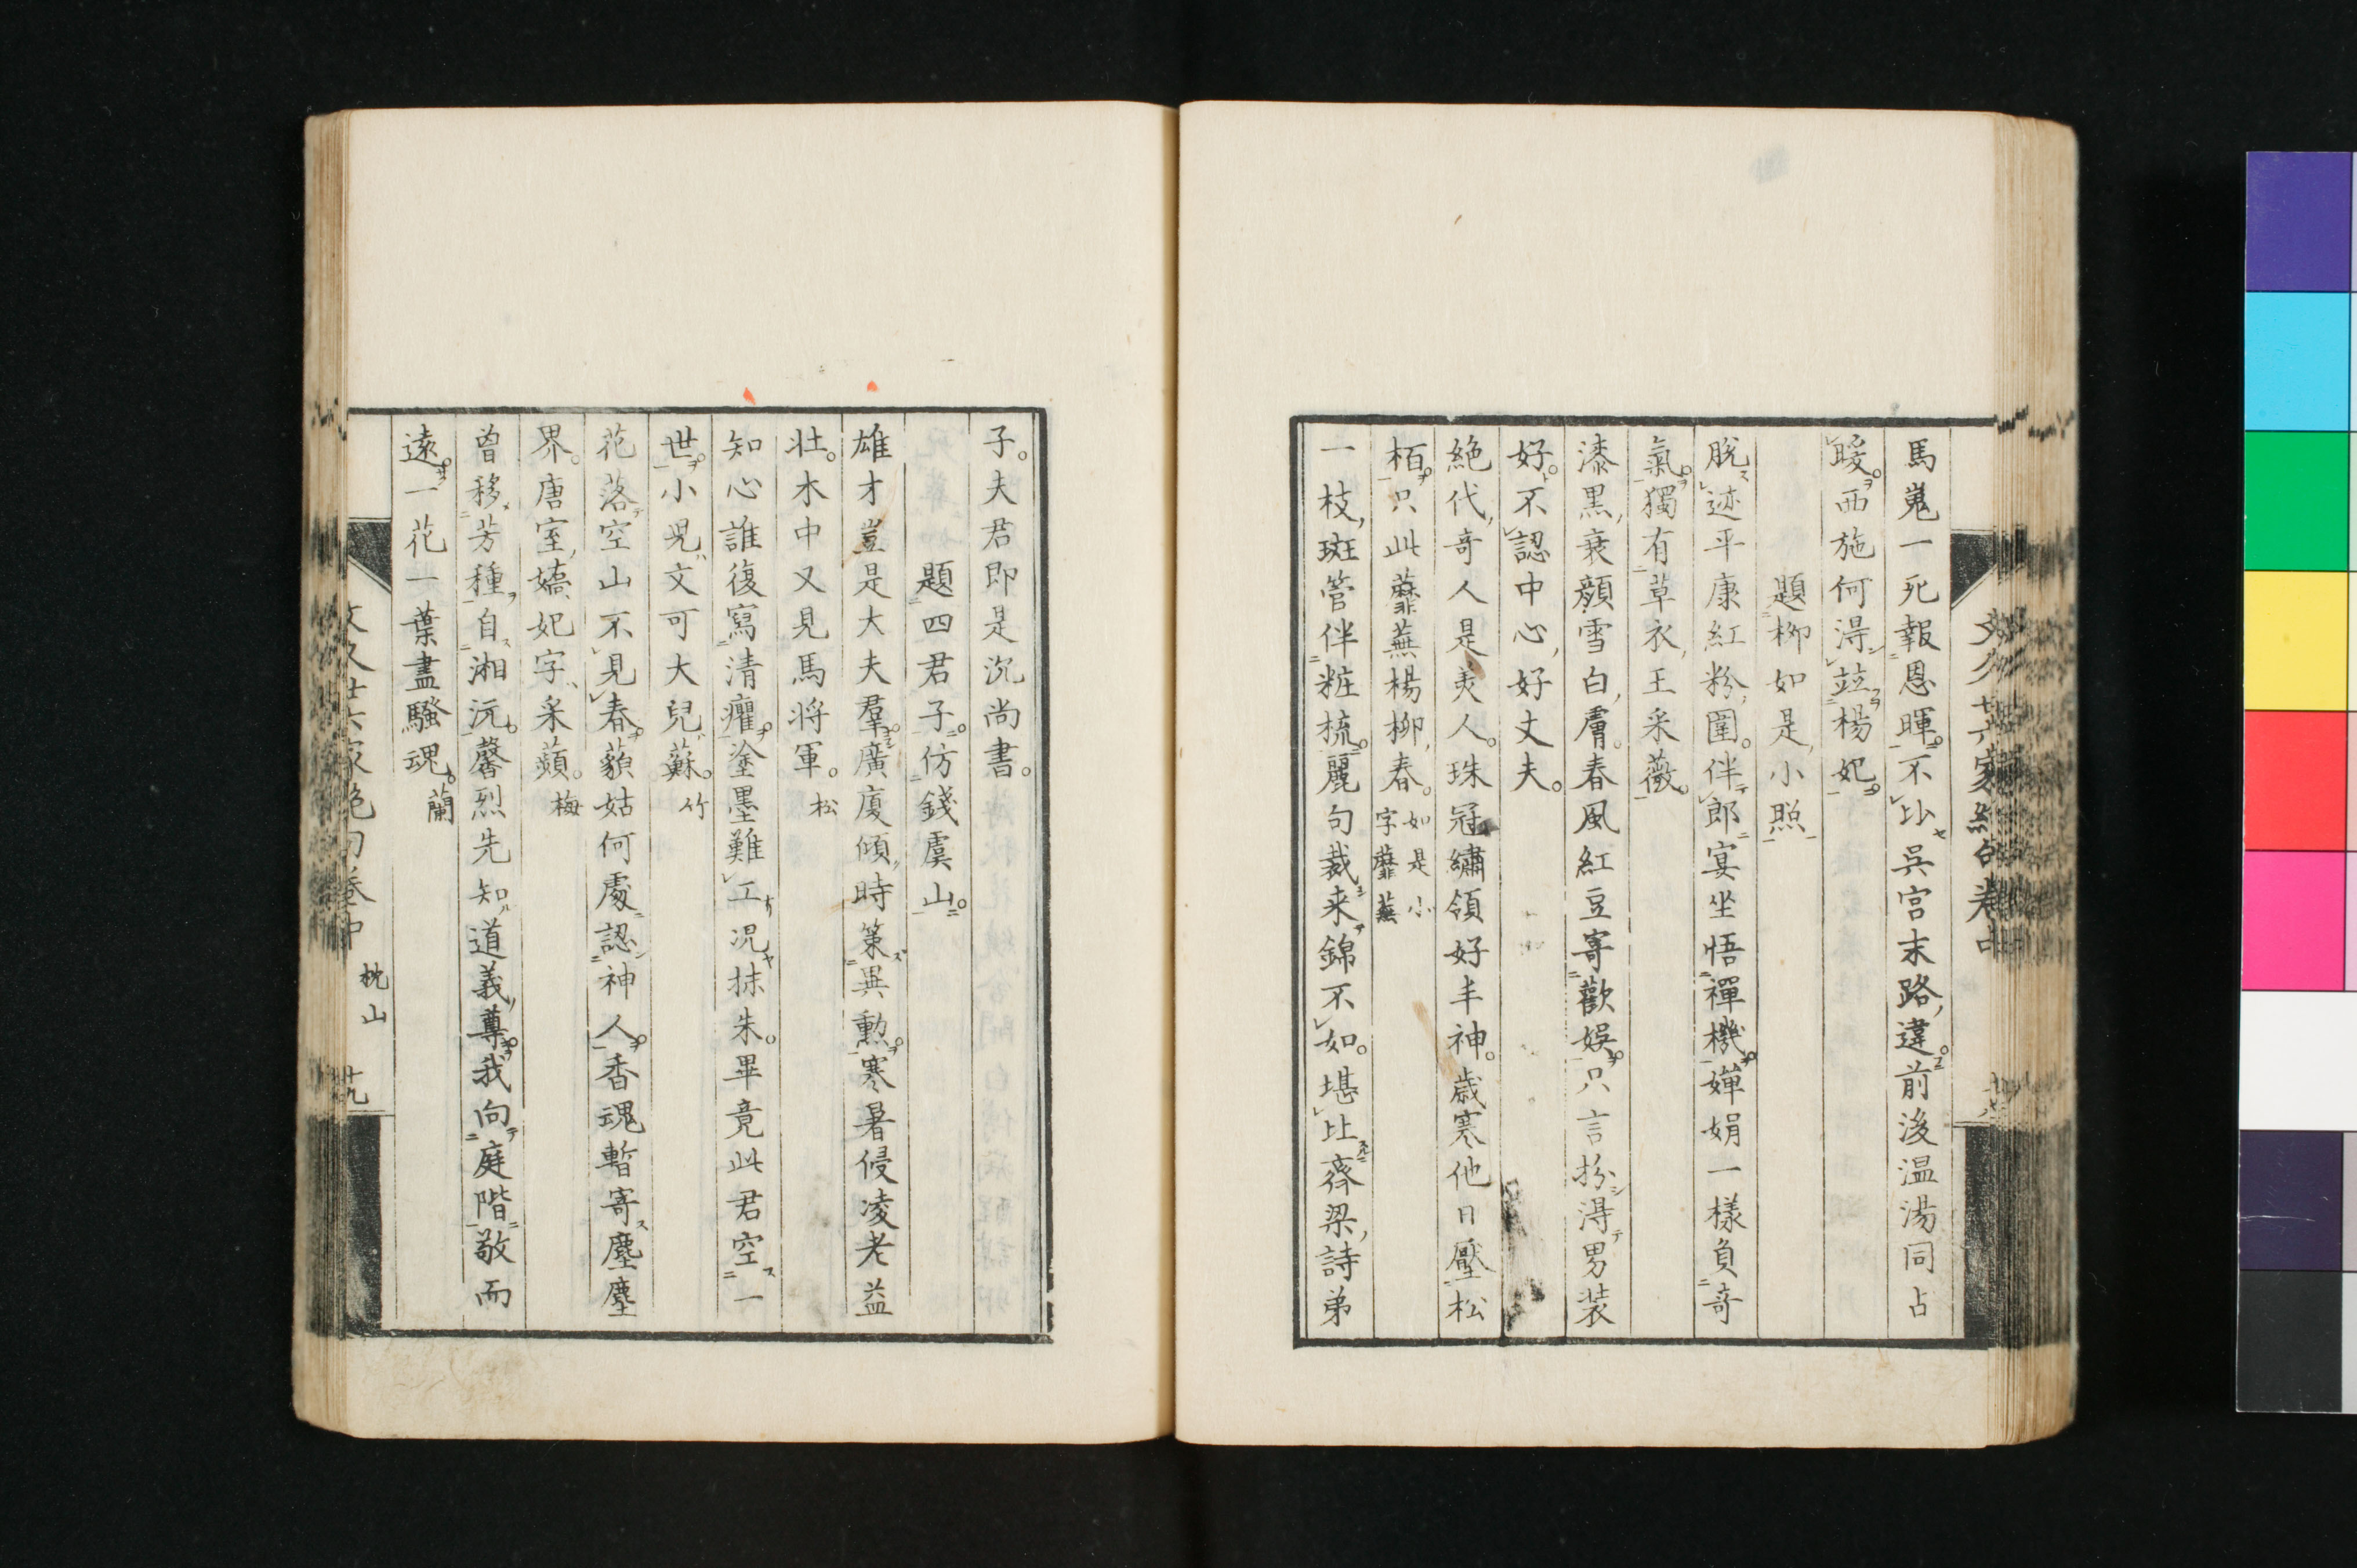 馬嵬一死報恩暉。不比吳宮末路違。前後温湯同占
暖。西施何得並楊妃。
題柳如是小照
脫迹平康紅粉圍。伴郎宴坐悟禪機。嬋娟一樣負奇
氣。獨有草衣王采薇。
漆黑衰顏雪白膚。春風紅豆寄歡娛。只言扮得男裝
好。不認中心好丈夫。
絶代奇人是美人。珠冠繡領好丰神。歳寒他日壓松
栢。只此蘼蕪楊柳春。如是小字蘼蕪
一枝斑管伴粧梳。麗句裁来錦不如。堪比齊梁詩弟
子。夫君即是沉尚書。
題四君子。仿錢虞山。
雄才豈是大夫羣。廣廈傾時策異勲。寒暑侵凌老益
壮。木中又見馬將軍。松
知心誰復寫清癯。塗墨難工況抹朱。畢竟此君空一
世。小兒文可大兒蘇。竹
花落空山不見春。藐姑何處認神人。香魂暫寄塵塵
界。唐室嬌妃字采蘋。梅
曽移芳種自湘沅。馨烈先知道義尊。我向庭階敬而
遠。一花一葉盡騷魂。蘭
文久廿六家絶句卷中 枕山 十九